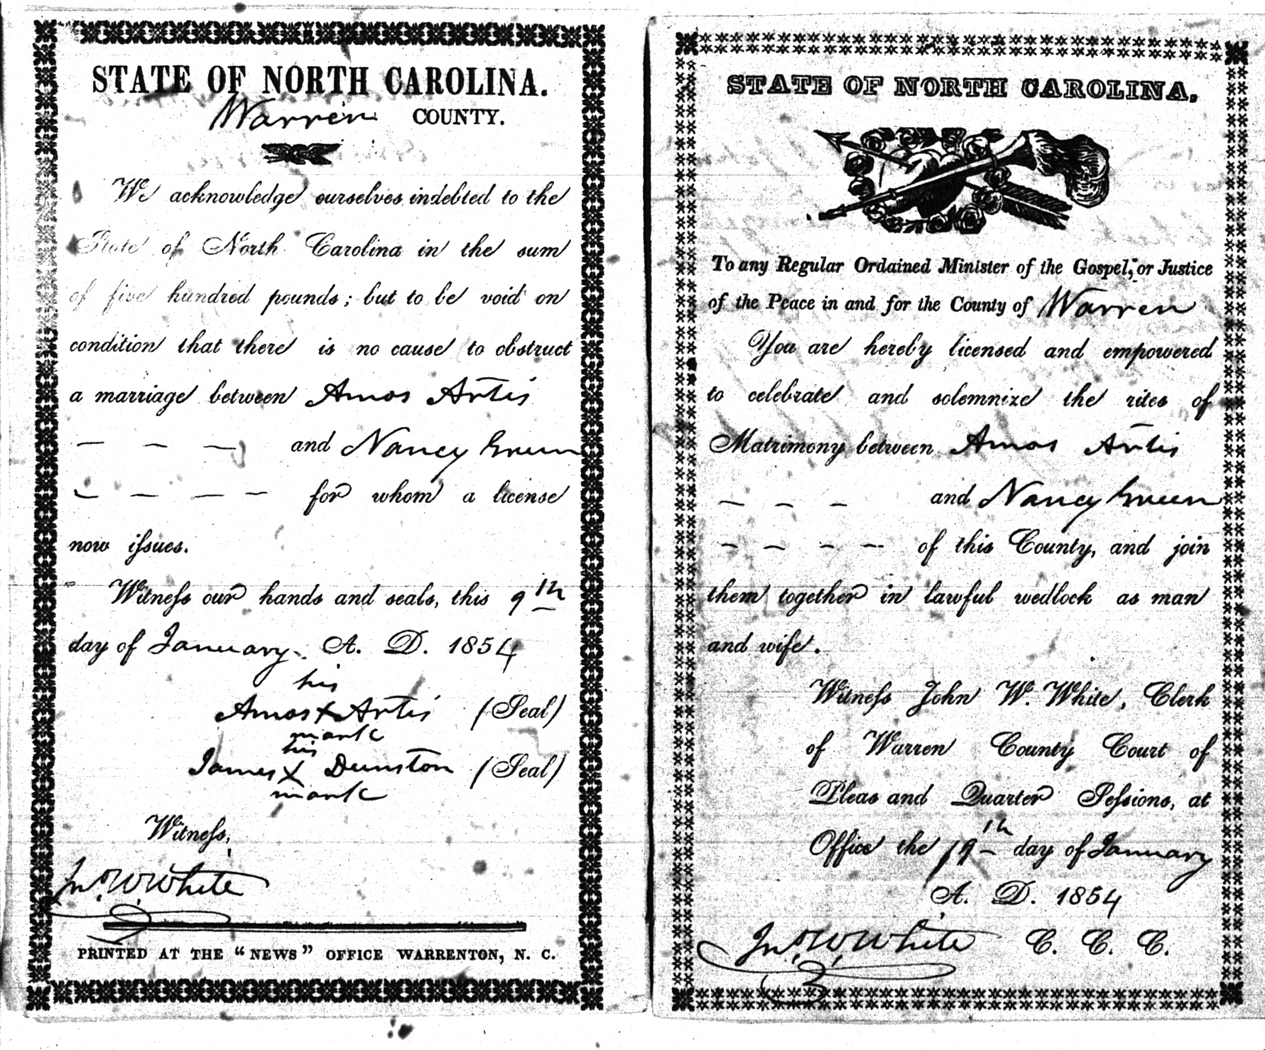 STATE OF NORTH CAROLINA.
Warren COUNTY.
We acknowledge ourselves indebted to the
State of North Carolina in the sum
of five hundred pounds; but to be void on
condition that there is no cause to obstruct
a marriage between Amos Artis
— — — and Nancy Green
— — — — for whom a license
now issues.
Witness our hands and seals, this 9th
day of January A. D. 1854
his
Amos X Artis (Seal)
mark
his
James X Dunston (Seal)
mark
Witness,
Jno. W. White
PRINTED AT THE "NEWS" OFFICE WARRENTON, N. C.
STATE OF NORTH CAROLINA,
To any Regular Ordained Minister of the Gospel, or Justice
of the Peace in and for the County of Warren
You are hereby licensed and empowered
to celebrate and solemnize the rites of
Matrimony between Amos Artis
— — — and Nancy Green
— — — — of this County, and join
them together in lawful wedlock as man
and wife.
Witness John W. White, Clerk
of Warren County Court of
Pleas and Quarter Sessions, at
Office the 19th day of January
A. D. 1854
Jno. W. White C. C. C.